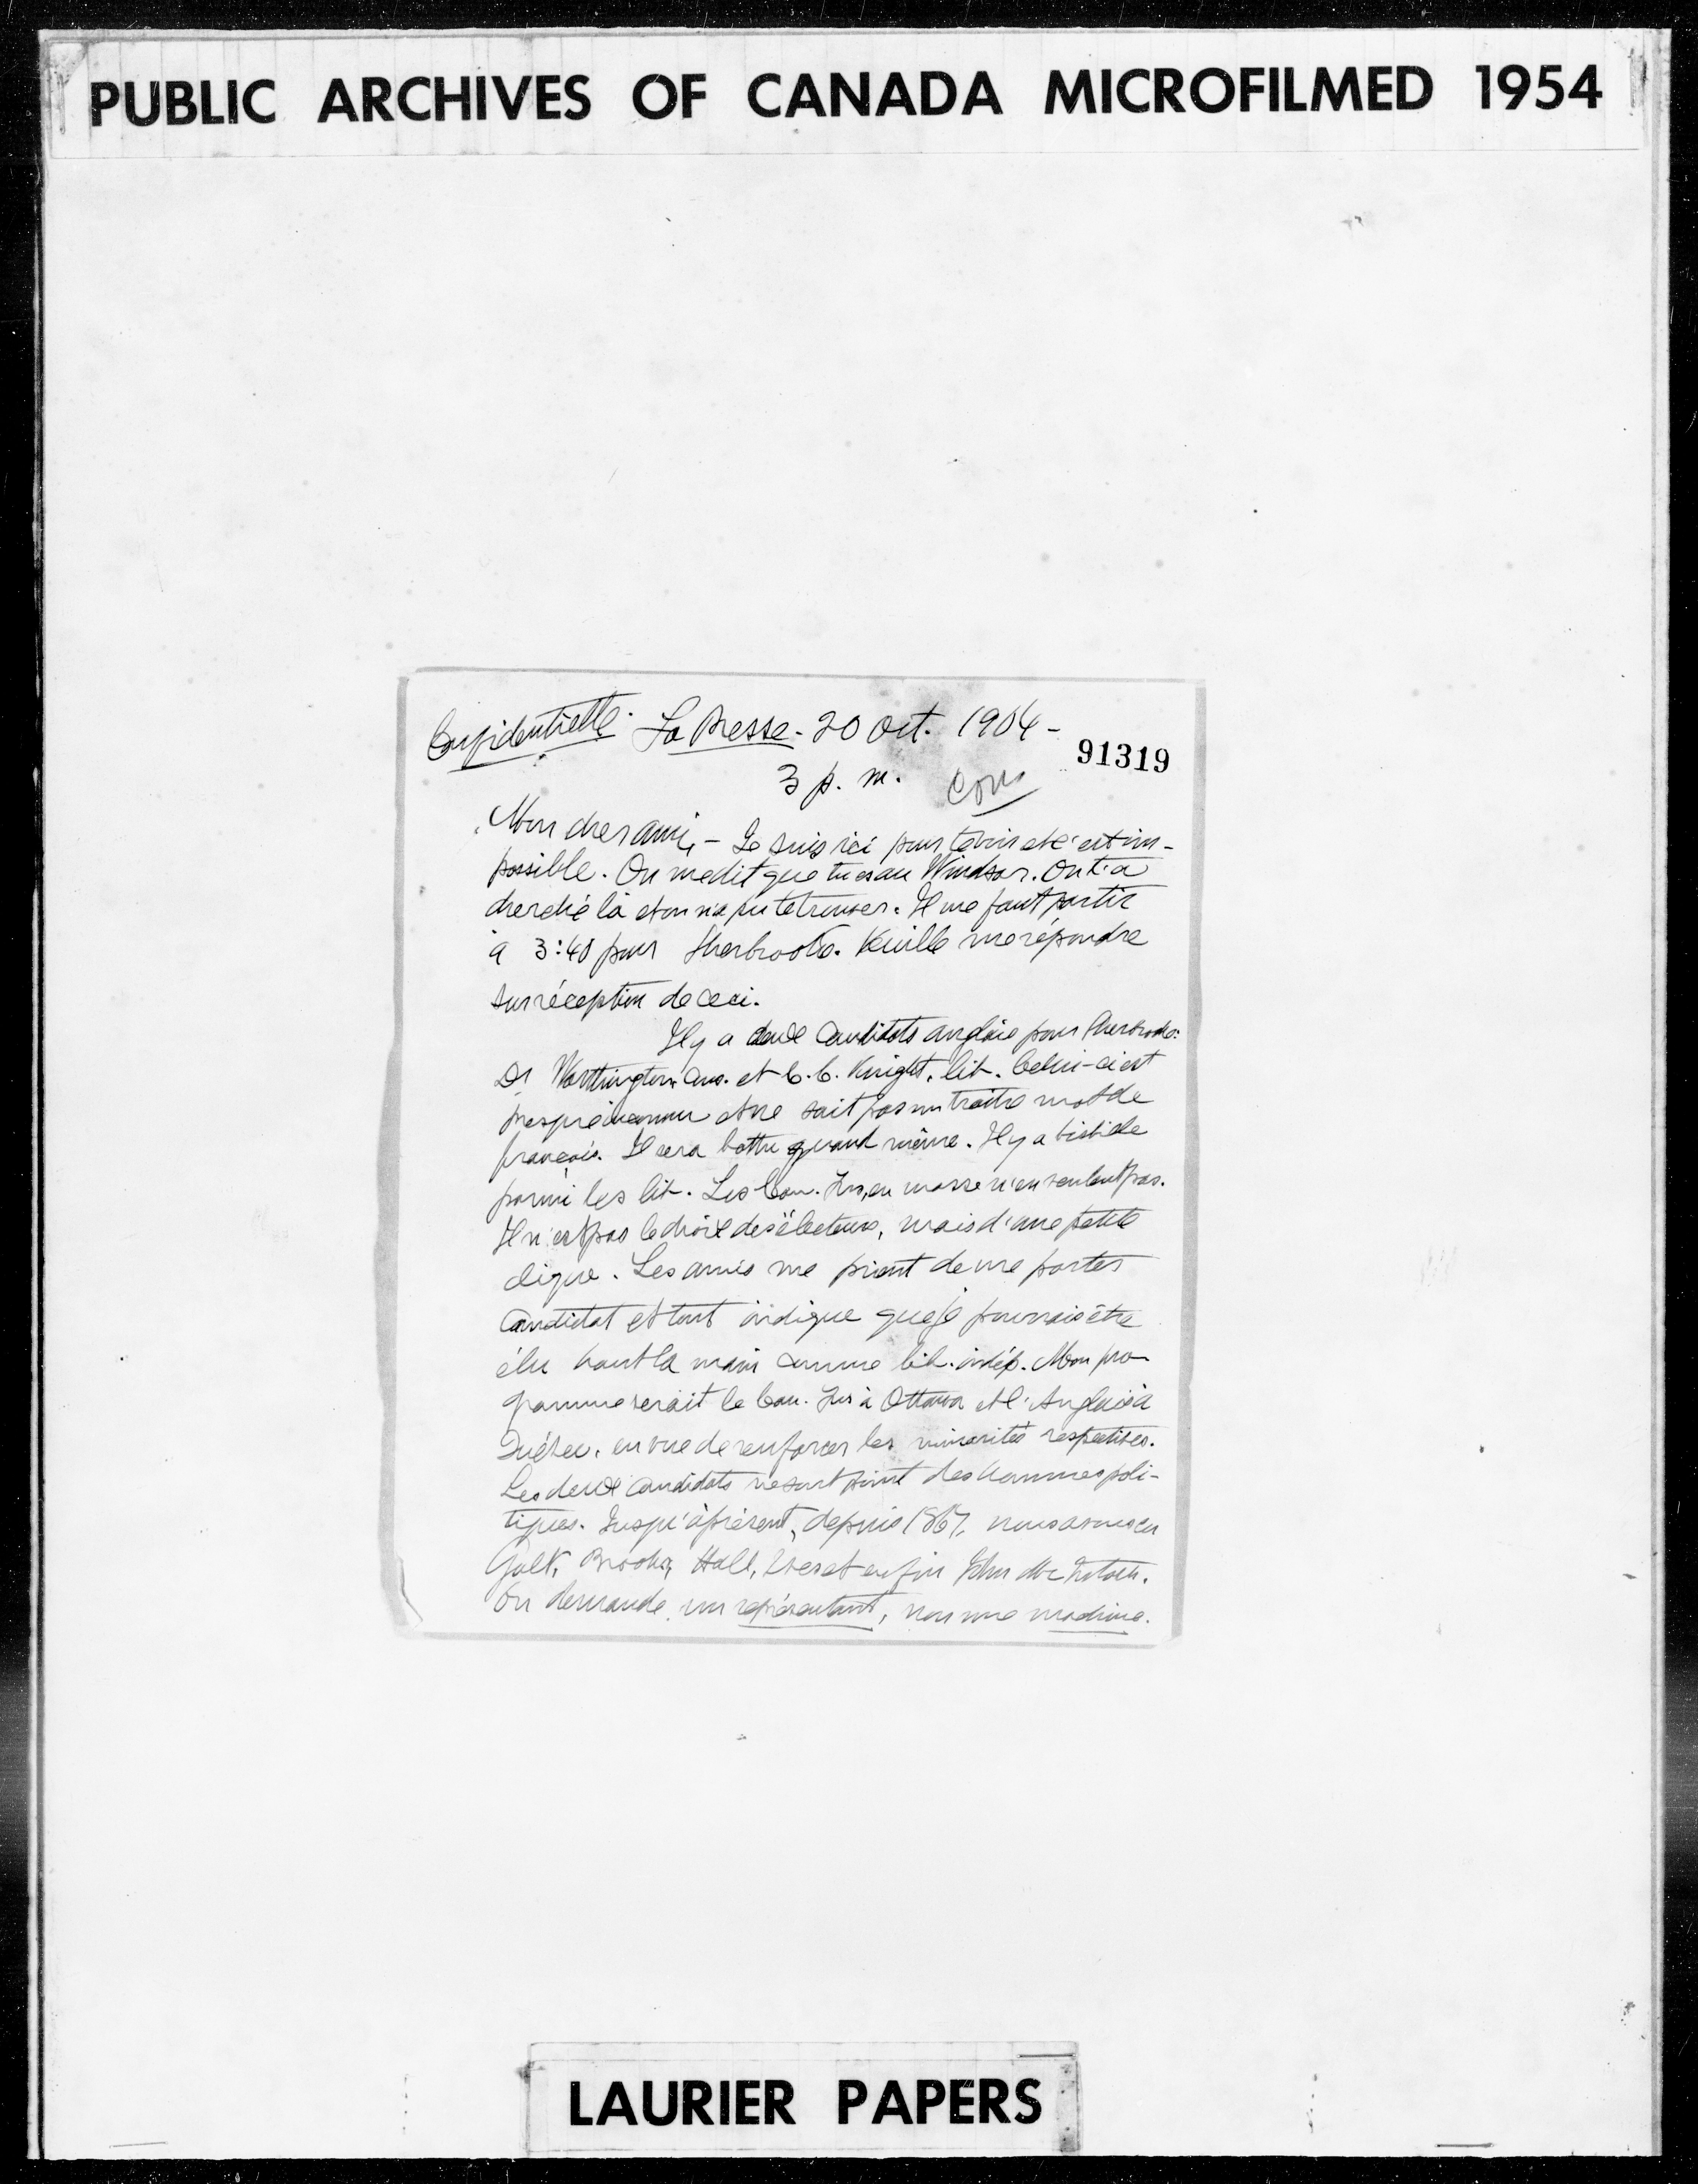 PUBLIC ARCHIVES OF CANADA MICROFILMED 1954
Confidentielle. La Presse. 20 Oct. 1904 -
91319
3 p. m.
Mon cher ami, - Je suis ici pour te voir et c'est im-
possible. On me dit que tu es au Windsor. On t'a
cherché là et on n'a pu te trouver. Il me faut partir
à 3:40 pour Sherbrooke. Veuille me répondre
sur réception de ceci.
Il y a deux candidats anglais pour Sherbrooke:
Dr Worthington cons. et C. C. Knight, lib. Celui-ci est
presque inconnu et ne sait pas un traître mot de
français. Il sera battu quand même. Il y a bisbille
parmi les lib. Les Can. Frs, en masse n'en veulent pas.
Il n'est pas le choix des électeurs, mais d'une petite
clique. Les amis me prient de me porter
candidat et tout indique que je pourrais être
élu haut la main comme lib. indép. Mon pro-
gramme serait le Can. Frs à Ottawa et l'Anglais à
Québec, en vue de renforcer les minorités respectives.
Les deux candidats ne sont point des hommes poli-
tiques. Jusqu'à présent, depuis 1867, nous avons eu
Galt, Brooks, Hall, Ives et enfin John McIntosh.
On demande un représentant, non une machine.
LAURIER PAPERS